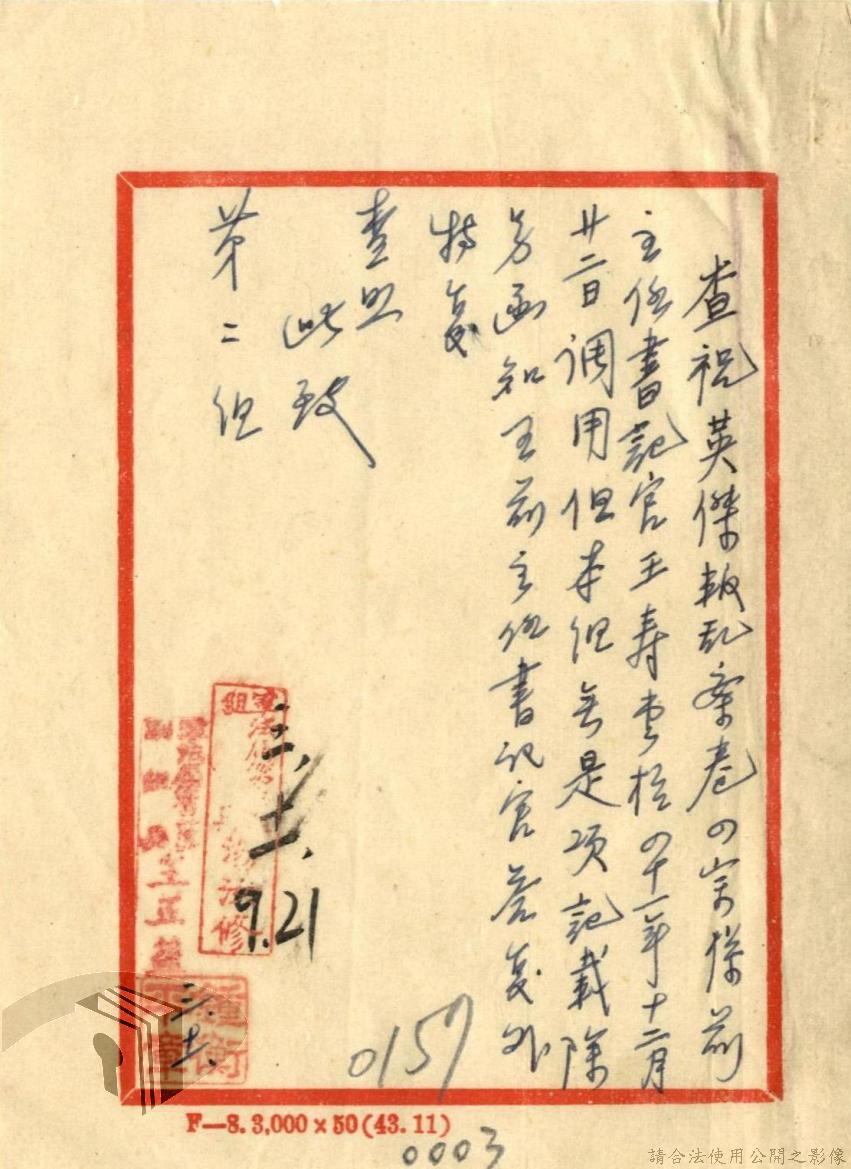 查祝英傑叛乱案卷四宗係前
主任書記官王壽 於四十一年十二月
廿二日調用但本組無是項記載除
另函知王前主任書記官答复外
特复
查照
此致
第二組
三、十一、
9.21
三、十一、
0157
F—8.3,000×50(43.11)
0003
請合法使用公開之影像